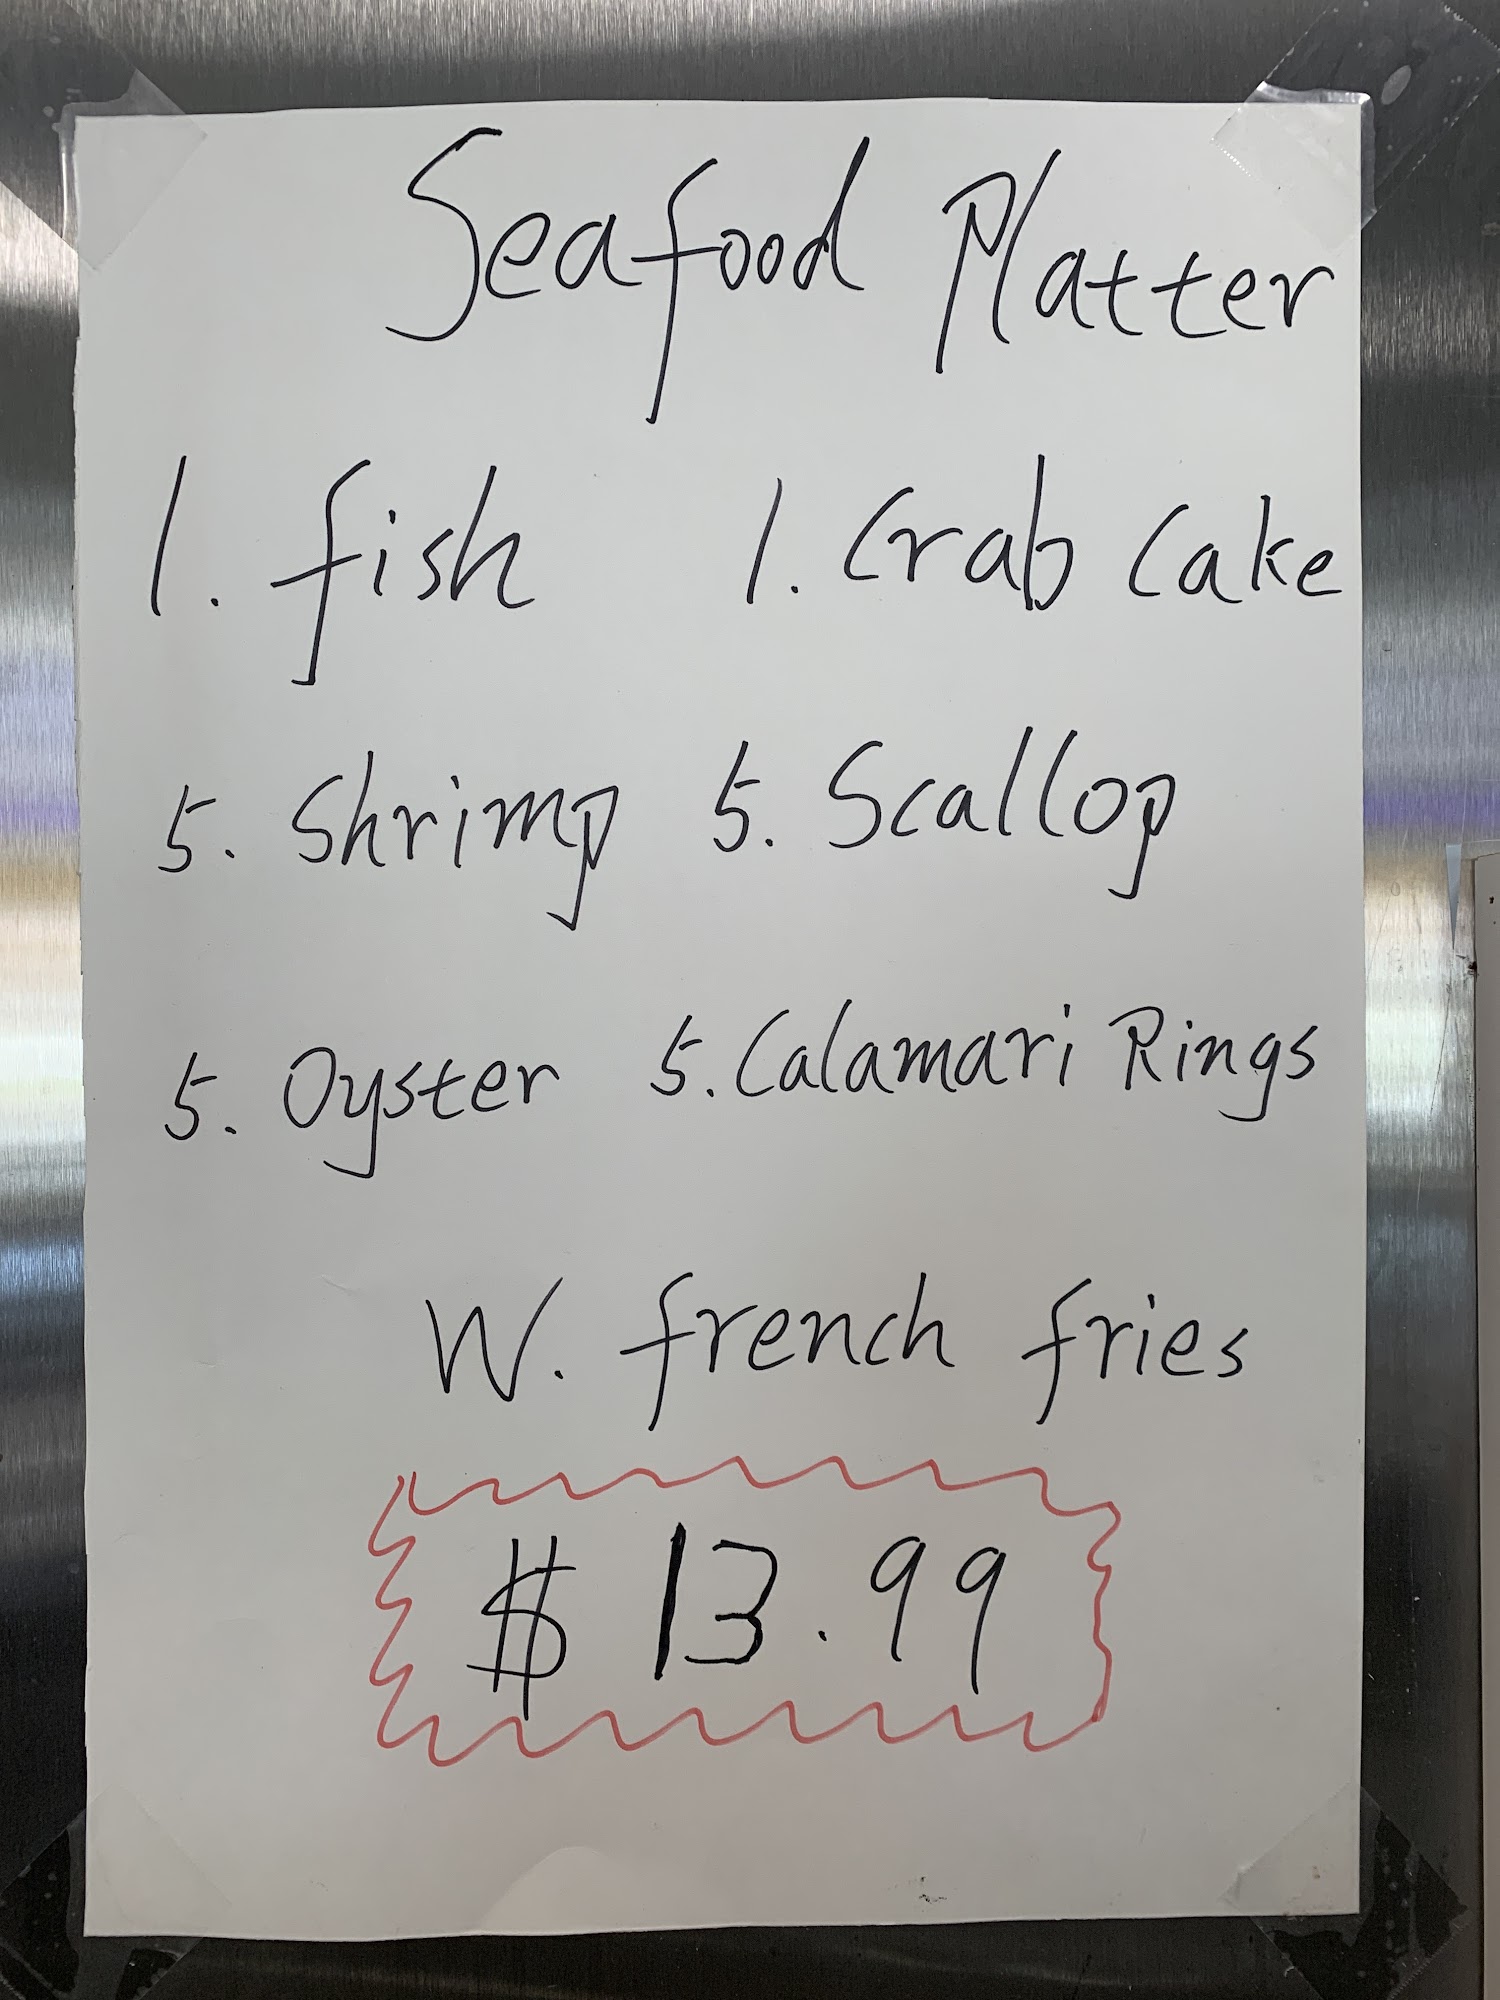 Seafood Platter
1. fish 1. Crab Cake
5. Shrimp 5. Scallop
5. Oyster 5. Calamari Rings
W. french fries
$ 13.99